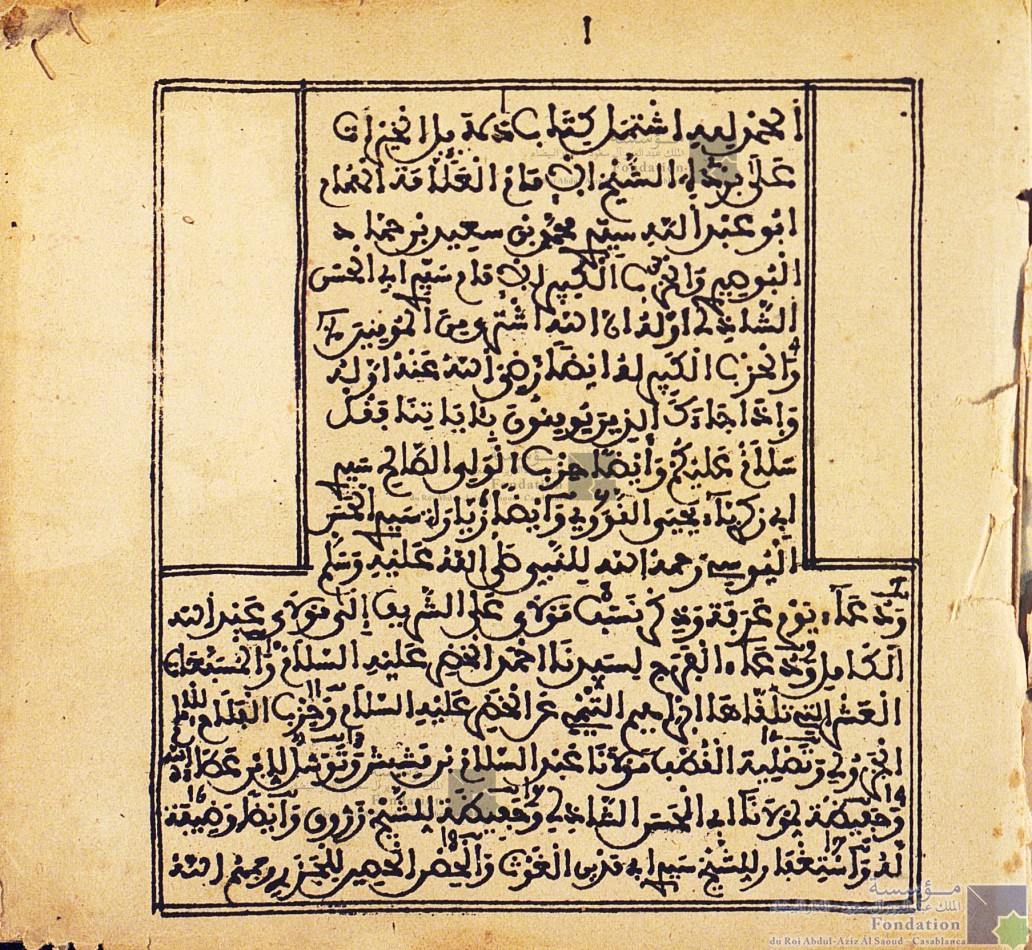 الحمد لله اشتمل كتاب
على بردة الشيخ الإمام العلامة الهمام
أبو عبد الله سيدي محمد بن سعيد بن حماد
البوصيري والحزب الكبير للإمام سيدي أبي الحسن
الشاذلي أوله إن الله اشترى من المؤمنين
والحزب الكبير له أيضا رضي الله عنه أوله
وإذا جاءك الذين يؤمنون بآياتنا فقل
سلام عليكم وأيضا حزب الولي الصالح سيدي
أبي زكرياء يحيى النووي وأيضا زيارة سيدي الحسن
اليوسي رحمه الله للنبي صلى الله عليه وسلم
ودعاء يوم عرفة وذكر نسب مولاي علي الشريف إلى مولاي عبد الله
الكامل ودعاء الفرج لسيدنا أحمد الخضر عليه السلام والمسبعات
العشر التي تلقاها إبراهيم التيمي عن الخضر عليه السلام وحزب الفلاح للإمام
الجزولي وتصلية القطب مولانا عبد السلام بن مشيش وتوسل لابن عطاء الله
وحفيظة لمولانا أبي الحسن الشاذلي وحفيظة للشيخ زروق وأيضا وظيفة
له واستغفار للشيخ سيدي أبي مدين الغوث والحصن الحصين للجزري رحمهم الله
مؤسسة
الملك عبد العزيز آل سعود - الدار البيضاء
Fondation
du Roi Abdul-Aziz Al Saoud - Casablanca